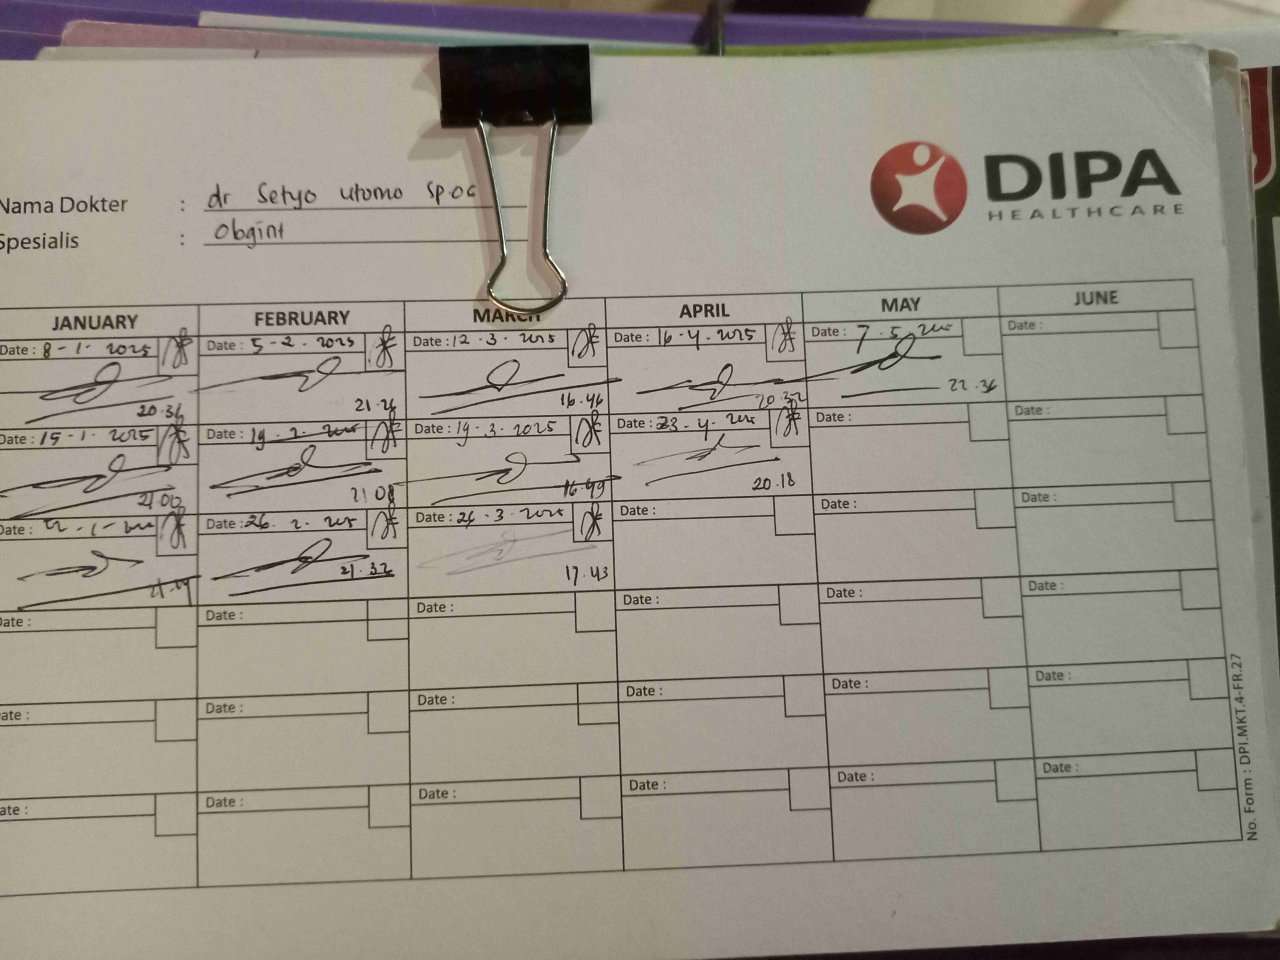 DIPA
HEALTHCARE
Nama Dokter : dr Setyo utomo Sp.OG
Spesialis : Obgint
JANUARY FEBRUARY MARCH APRIL MAY JUNE
Date : 8-1-2025 Date : 5-2-2025 Date : 12-3-2025 Date : 16-4-2025 Date : 7-5-2025 Date :
20.36 21.26 16.46 20.32 22.36
Date : 15-1-2025 Date : 19-2-2025 Date : 19-3-2025 Date : 23-4-2025 Date : Date :
21.08 16.49 20.18
Date : 22-1-2025 Date : 26-2-2025 Date : 26-3-2025 Date : Date : Date :
21.32 17.43
Date : Date : Date : Date : Date : Date :
Date : Date : Date : Date : Date : Date :
Date : Date : Date : Date : Date : Date :
No. Form : DPI.MKT.4-FR.27